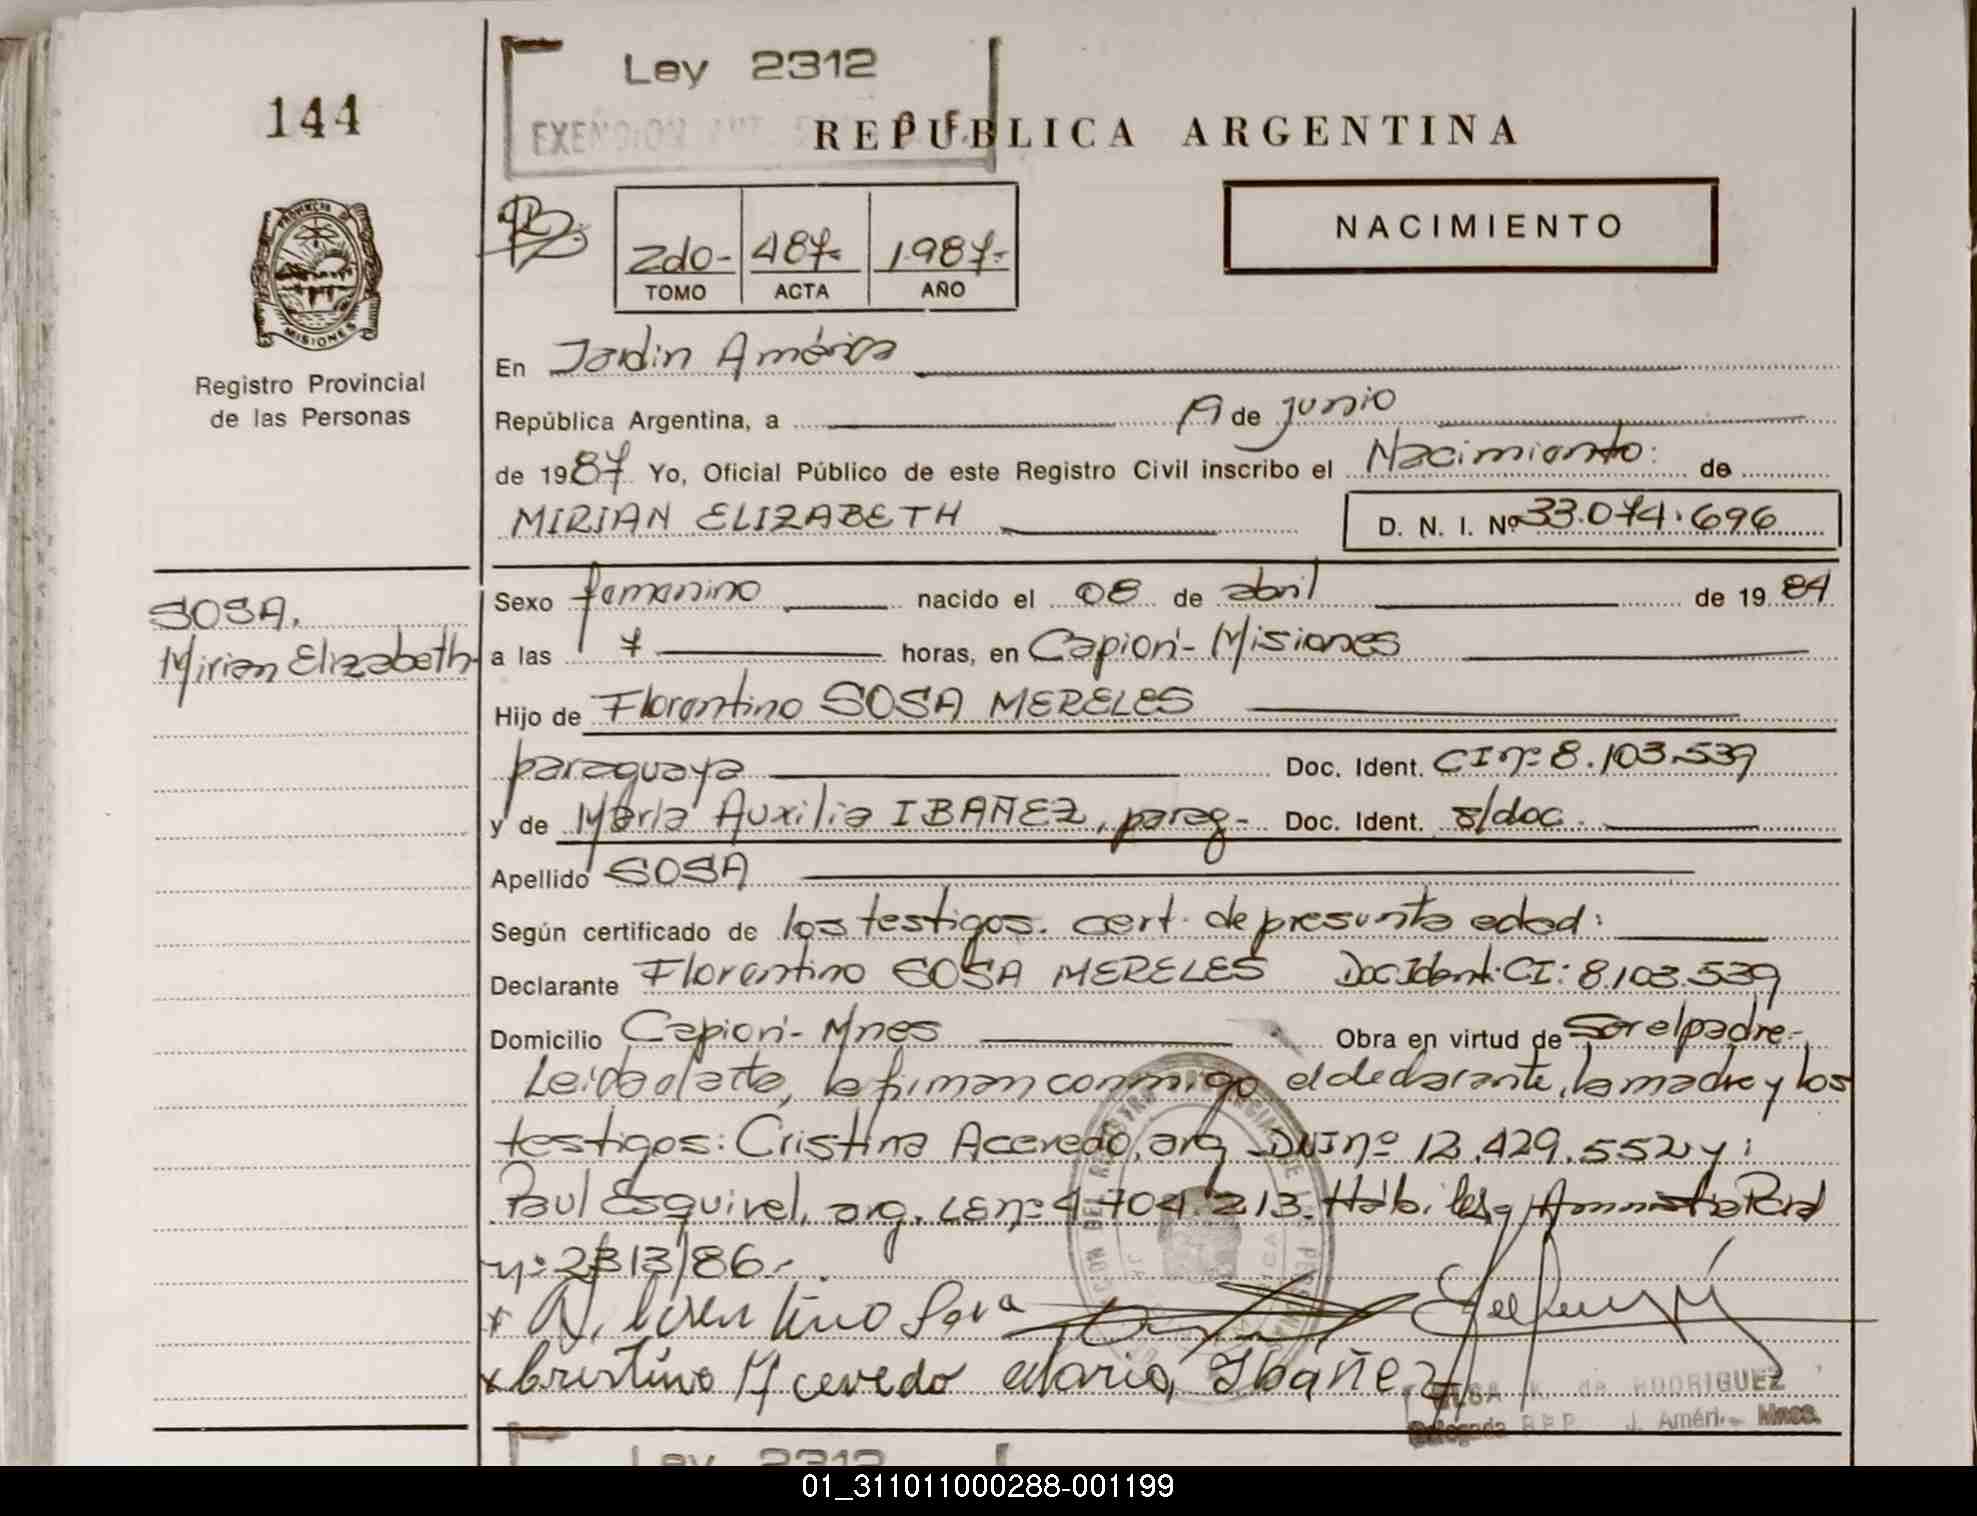 Ley 2312
144
REPUBLICA ARGENTINA
NACIMIENTO
2do- 487- 1987-
TOMO ACTA AÑO
PROVINCIA DE
MISIONES
Registro Provincial
de las Personas
En Jardin América
República Argentina, a 19 de junio
de 1987 Yo, Oficial Público de este Registro Civil inscribo el Nacimiento: de
MIRIAN ELIZABETH D. N. I. Nº 33.074.696
SOSA.
Mirian Elizabeth
Sexo femenino nacido el 08 de abril de 1984
a las 7 horas, en Capiovi- Misiones
Hijo de Florentino SOSA MERELES
paraguaya Doc. Ident. CI nº 8.103.539
y de María Auxilia IBAÑEZ, parag- Doc. Ident. s/doc.
Apellido SOSA
Según certificado de los testigos. cert. de presunta edad:
Declarante Florentino SOSA MERELES Doc Ident: CI: 8.103.539
Domicilio Capiovi- Mnes Obra en virtud de Ser el padre-
Leida el acta, la firman conmigo el declarante, la madre y los
testigos: Cristina Acevedo, arg DNI nº 12.429.552 y:
Paul Esquivel, arg. LE nº 4.704.213.
nº 2313/86.-
Florentino Sosa
x Cristina Acevedo Maria, Ibañez
de RODRIGUEZ
Delegada R.P.P. J. Améri. Mnes.
Ley 2312
01_311011000288-001199